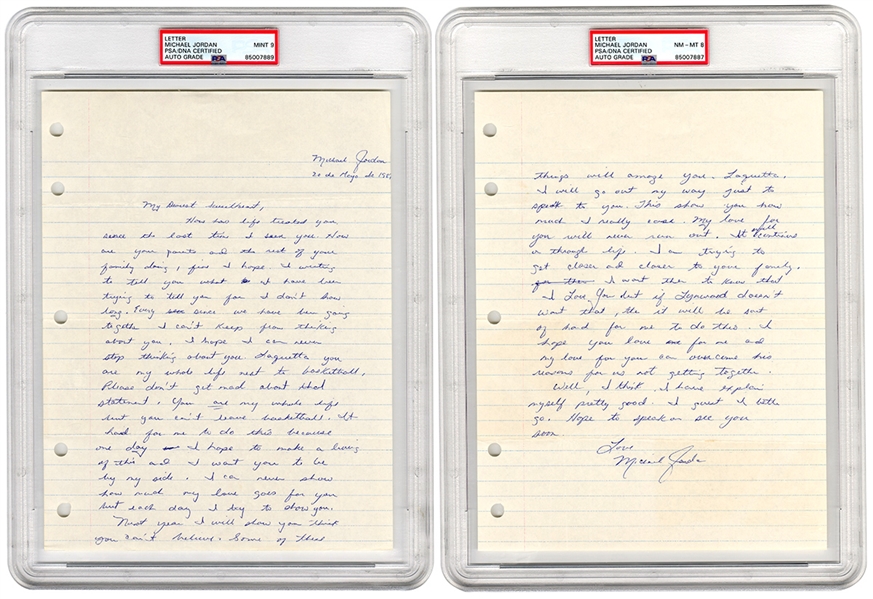 LETTER
MICHAEL JORDAN MINT 9
PSA/DNA CERTIFIED
AUTO GRADE PSA 85007889
Michael Jordan
20 de Mayo de
My Dearest Sweetheart,
How has life treated you
since the last time I seen you. How
are your parents and the rest of your
family doing, fine I hope. I writing
to tell you what I have been
trying to tell you for I don't know
long. Every since we have been going
together I can't keep from thinking
about you. I hope I can never
stop thinking about you Laquetta you
are my whole life next to basketball.
Please don't get mad about that
statement. You are my whole life
but you can't leave basketball. It
hard for me to do this because
one day I hope to make a living
of this and I want you to be
by my side. I can never show
how much my love goes for you
but each day I try to show you.
Next year I will show you think
you can't believe. Some of these
LETTER
MICHAEL JORDAN NM - MT 8
PSA/DNA CERTIFIED
AUTO GRADE PSA 85007887
things will amaze you. Laquetta.
I will go out my way just to
speak to you. This show you how
much I really care. My love for
you will never run out. It will continue
through life. I am trying to
get closer and closer to your family.
I want them to know that
I Love You but if Lynwood doesn't
want that, the it will be sort
of hard for me to do this. I
hope you love for me and
my love for you can overcome his
reasons for us not getting together.
Well, I think I have explain
myself pretty good. I guest I better
go. Hope to speak or see you
soon.
Love
Michael Jordan